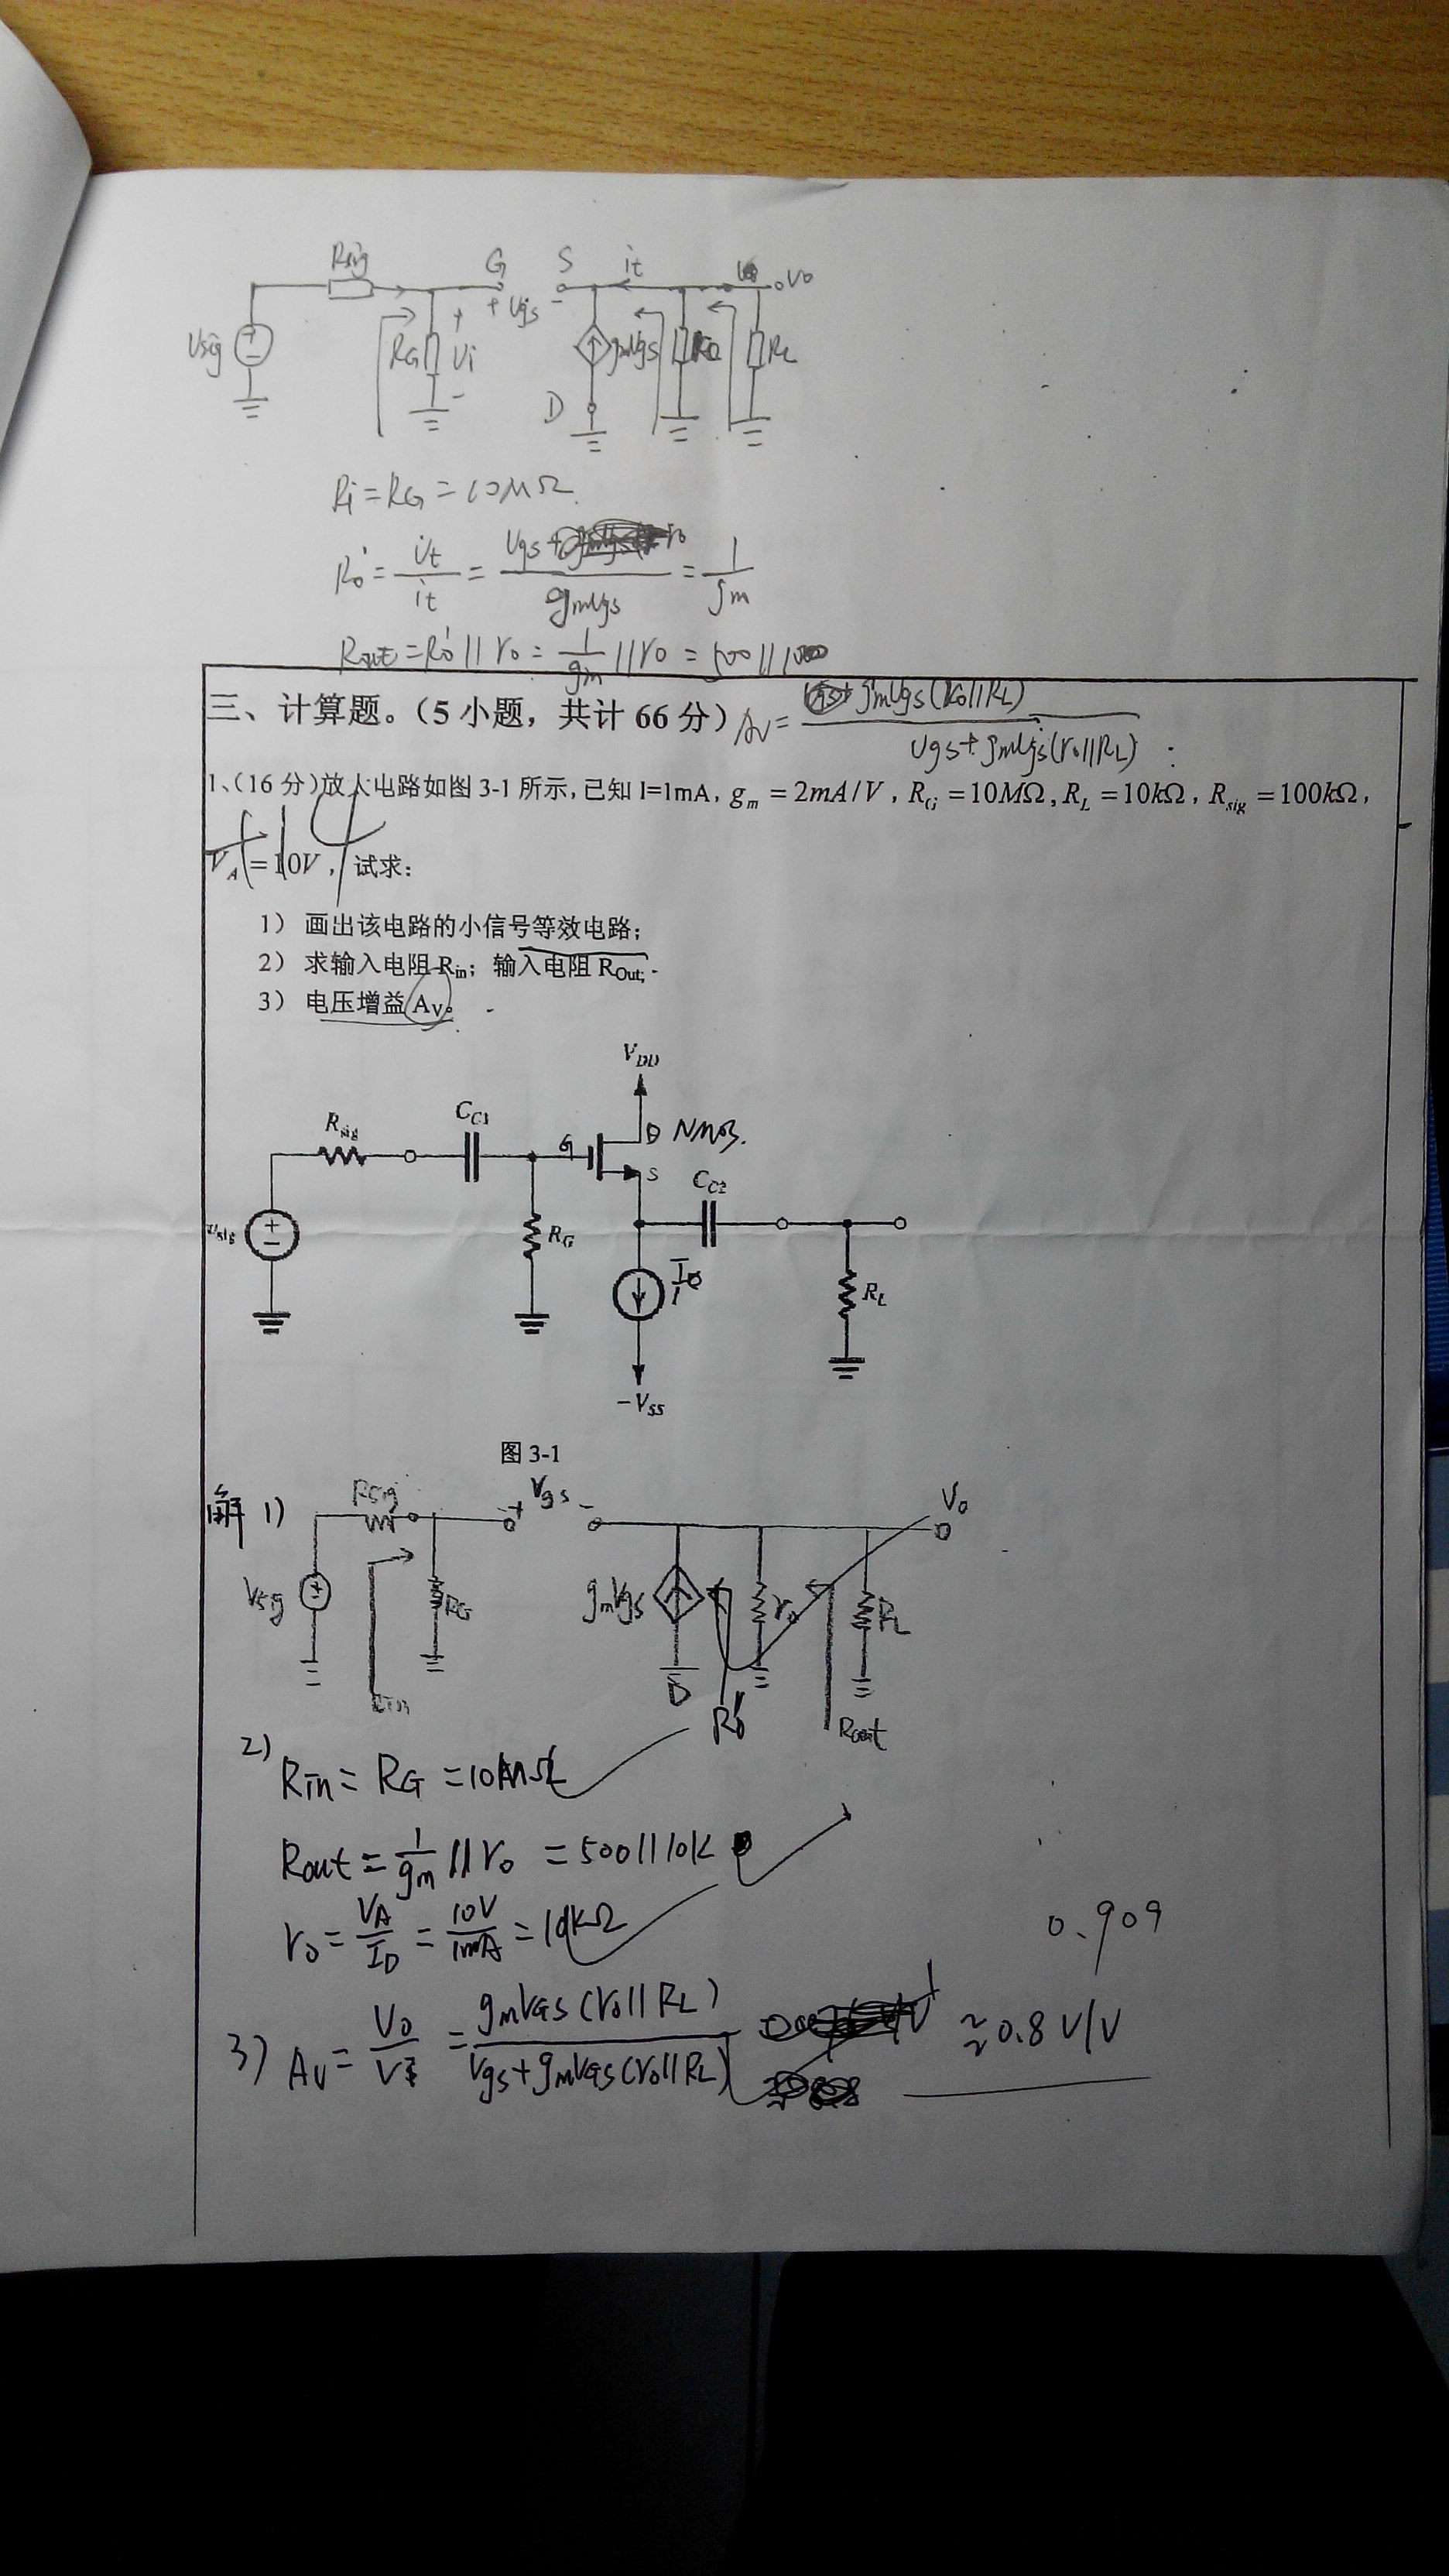 Rsig G S it Vo
Vsig RG Vi + Vgs - gmVgs RL
D
Ri = RG = 10MΩ.
Ro' = Vt/it = Vgs/gmVgs = 1/gm
Rout = Ro' || ro = 1/gm || ro = 500 ||
三、计算题。（5 小题，共计 66 分） Av = gmVgs(ro||RL) / Vgs+gmVgs(ro||RL)
1、（16 分）放大电路如图 3-1 所示，已知 I=1mA，gm = 2mA/V，RG = 10MΩ, RL = 10kΩ，Rsig = 100kΩ，
VA = 10V，试求：
1） 画出该电路的小信号等效电路；
2） 求输入电阻 Rin；输入电阻 ROut;
3） 电压增益 AV。
VDD
Rsig CC1 G D NMOS.
S CC2
vsig RG I RL
-VSS
图 3-1
解 1) Rsig + Vgs - Vo
Vsig RG gmVgs ro RL
Rin D Ro' Rout
2) Rin = RG = 10MΩ
Rout = 1/gm || ro = 500||10k
ro = VA/ID = 10V/1mA = 10kΩ
0.909
3) Av = Vo/Vi = gmVGS(ro||RL) / Vgs+gmVGS(ro||RL) ≈ 0.8 V/V